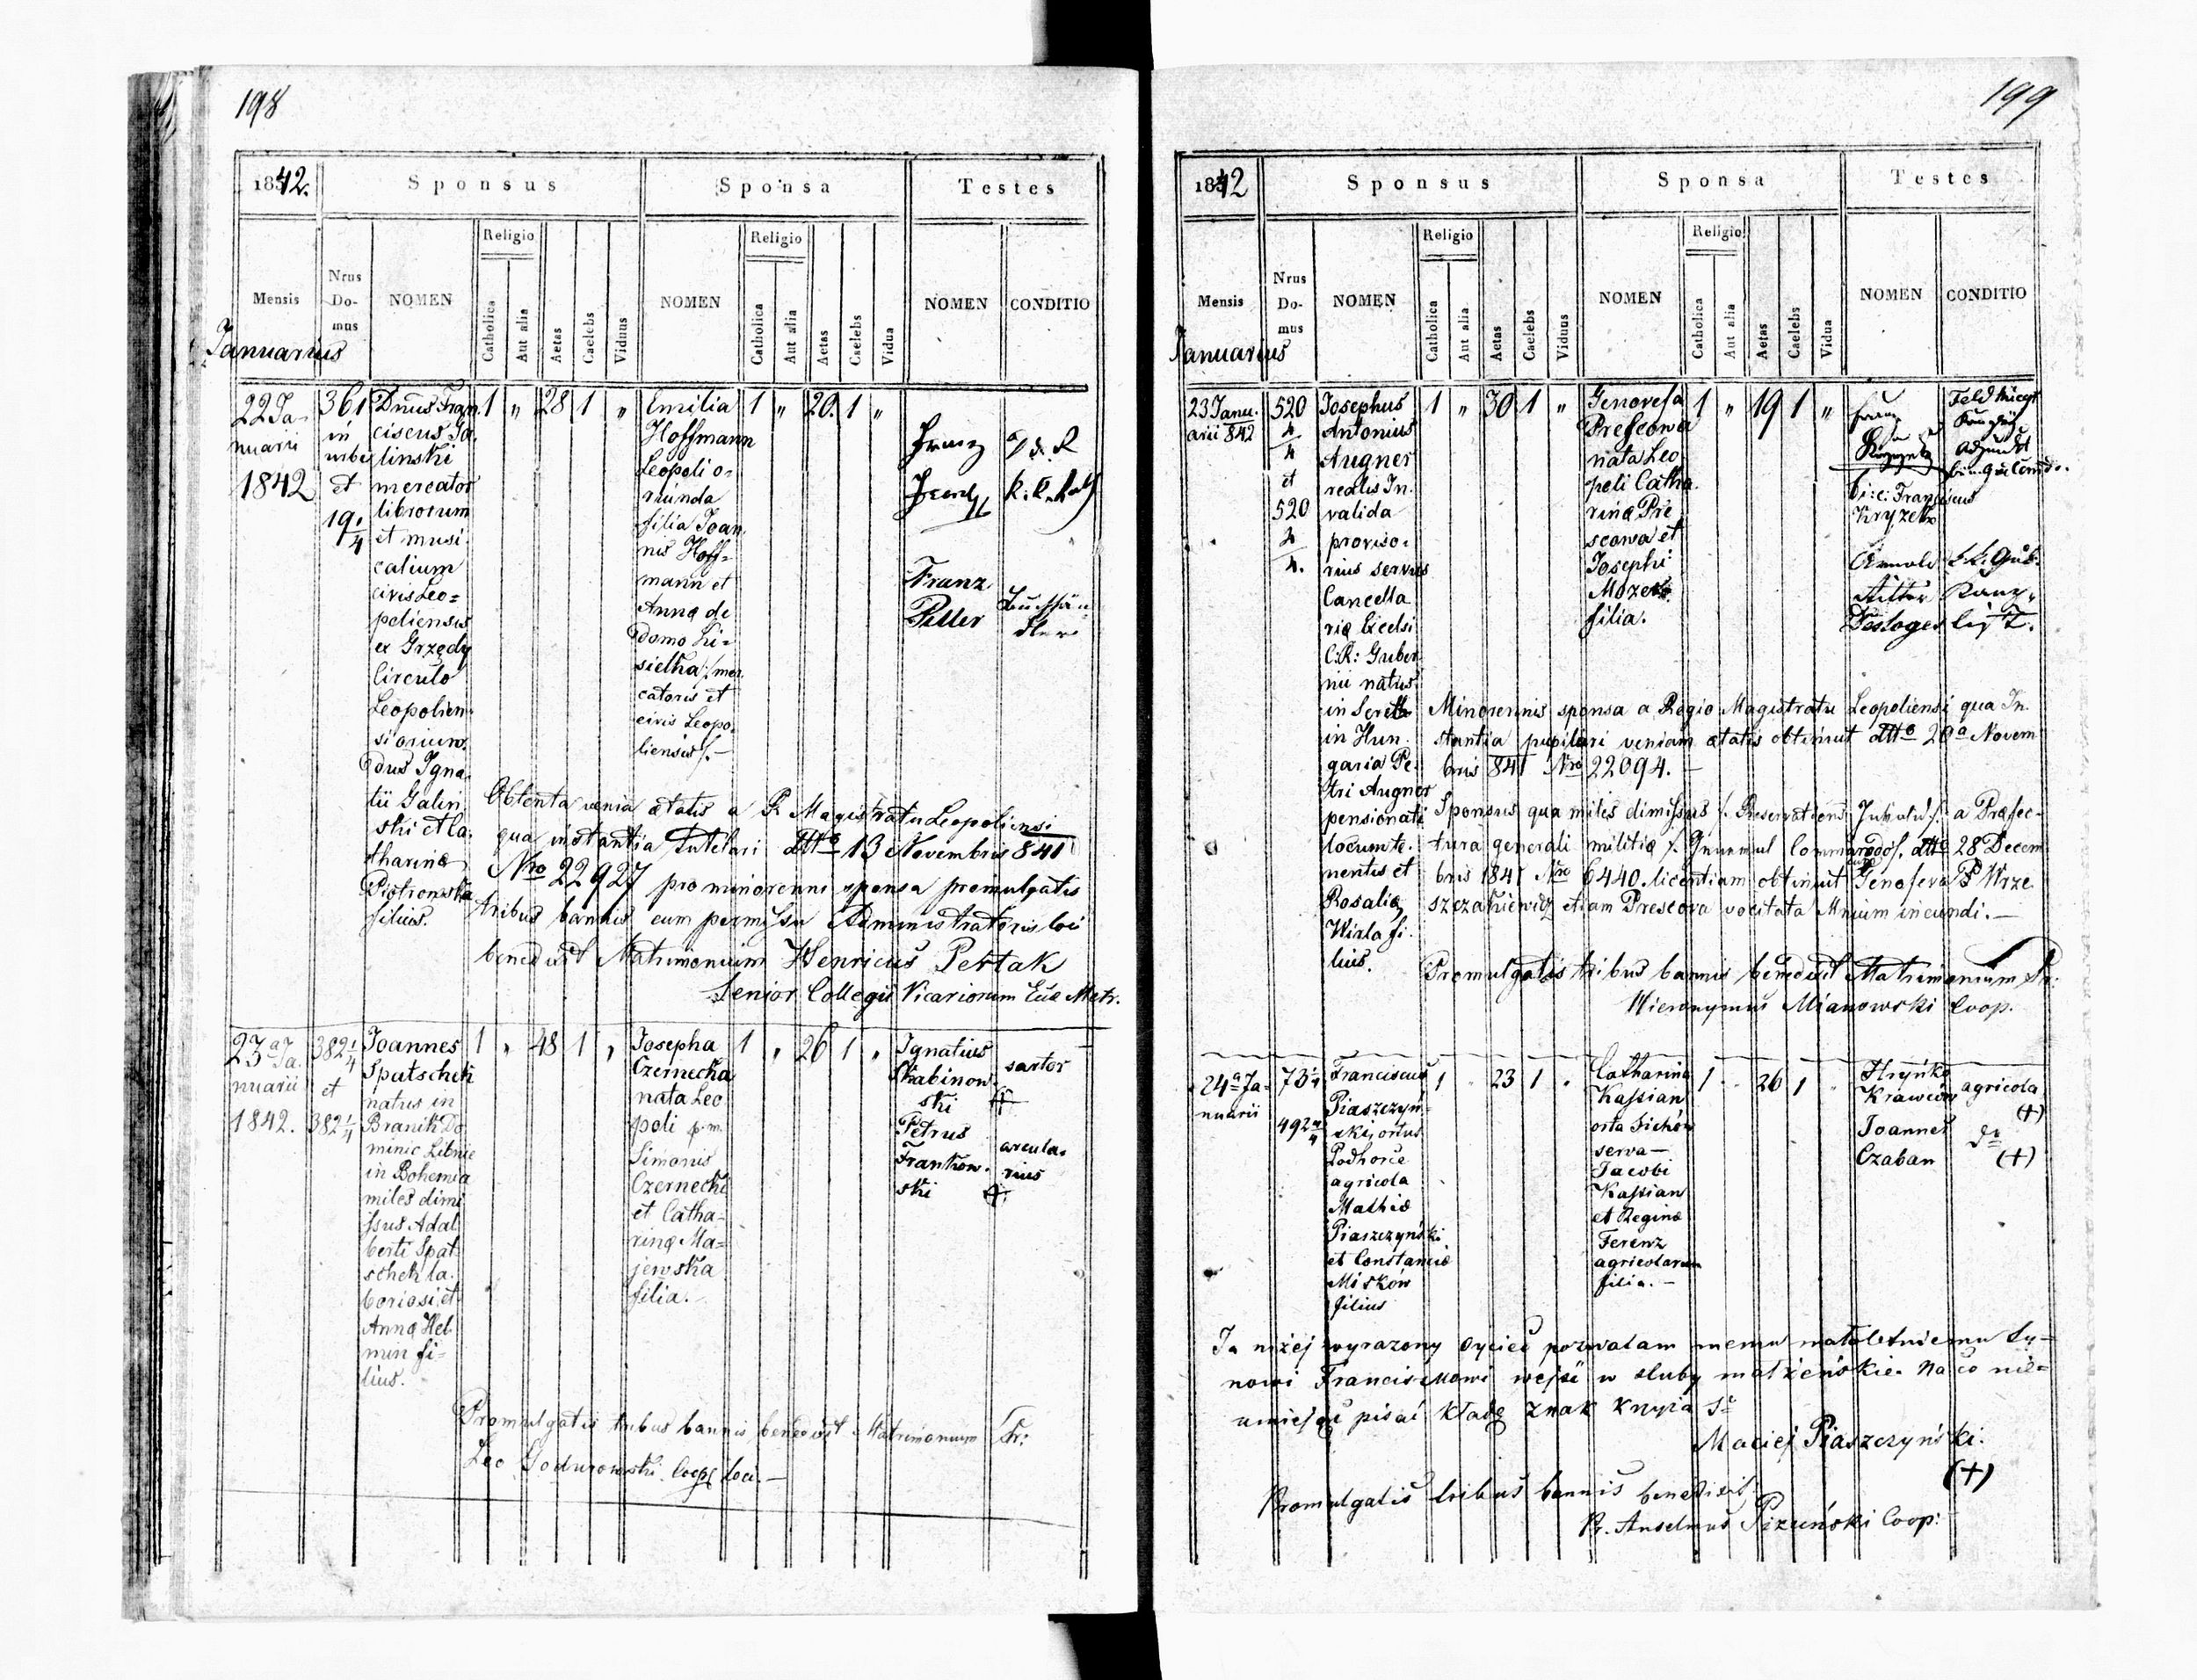 198
1842.
Sponsus
Sponsa
Testes
Mensis
Nrus
Do-
mus
NOMEN
Religio
Catholica
Aut alia
Aetas
Caelebs
Viduus
NOMEN
Religio
Catholica
Aut alia
Aetas
Caelebs
Vidua
NOMEN
CONDITIO
Januarius
22 Ja-
nuarii
1842
361
in
urbe
et
19 1/4
Dnus Fran
ciscus Ga
linski
mercator
librorum
et musi
calium
civis Leo=
poliensis
ex Grzędy
Circulo
Leopolien
si oriun
dus Igna
tii Galin
ski et Ca
tharinæ
Piotrowska
filius.
1 " 28 1 "
Emilia
Hoffmann
Leopoli o=
riunda
filia Joan
nis Hoff=
mann et
Anna de
domo Ki=
sielka /mer
catoris et
civis Leopo
liensis/.-
1 " 20. 1 "
Franz
Franz
Piller
Buchhän
dler
Obtenta venia ætatis a R. Magistratu Leopoliensi
qua instantia Tutelari ddto 13 Novembris 841
Nro 22927 pro minorenni sponsa promulgatis
tribus bannis cum permissu Administratoris loci
benedixit Matrimonium Henricus Pertak
Senior Collegii Vicariorum Eccl. Metr.
23 a Ja.
nuarii
1842.
382 1/4
et
382 1/4
Joannes
Spatschek
natus in
Branik Do
minic Libnic
in Bohemia
miles dimi
ssus Adal
berti Spat
schek la
boriosi et
Anna Hel
min fi=
lius.
1 " 48 1 "
Josepha
Czernecka
nata Leo
poli p.m.
Simonis
Czernecki
et Catha=
rina Ma=
jewska
filia.
1 " 26 1 "
Ignatius
Skabinow
ski
sartor
+
Petrus
Frankow.
ski
arcula.
rius
+
Promulgatis tribus bannis benedixit Matrimonium Fr:
Leo Codurowski Coop loci.—
199
1842
Sponsus
Sponsa
Testes
Mensis
Nrus
Do-
mus
NOMEN
Religio
Catholica
Aut alia
Aetas
Caelebs
Viduus
NOMEN
Religio
Catholica
Aut alia
Aetas
Caelebs
Vidua
NOMEN
CONDITIO
Januarius
23 Janu.
arii 842
520
2
4
et
520
2
4.
Josephus
Antonius
Augner
realis In.
valida
proviso.
rius servus
Cancella
riæ Excelsi
C:R: Guber
nii natus
in Serett
in Hun.
garia Pe.
tri Augner
pensionati
locumte.
nentis et
Rosalia
Wirla fi.
lius.
1 " 30 1 "
Genovefa
Prescowa
nata Leo
poli Catha
rina Pre
scowa et
Josephi
Mozer
filia.
1 " 19 1 "
Franz
Feld Kriegs
Kanzley
Adjunkt
/:i:e: Franciscus
Kryzek
Arnold
Ritter
Desloges
k.k. Gub.
Kanz.
list.
Minorennis sponsa a Regio Magistratu Leopoliensi qua In
stantia pupilari veniam ætatis obtinuit ddto 20a Novem
bris 841 Nro 22094. —
Sponsus qua miles dimissus /. Reservations Invalid/. a Præfec-
tura generali militiæ /. General Commando/. ddto 28 Decem
bris 1841 Nro 6440. licentiam obtinuit cum Genofeva P Wrze
szczakiewicz etiam Prescova vocitata Mnium ineundi.—
Promulgatis tribus bannis benedixit Matrimonium Fr:
Hieronymus Mianowski Coop.
24 a Ja=
nuarii
73 1/4
492 4/4
Franciscus
Piaszczyń=
ski ortus
Podhorce
agricola
Mathiæ
Piaszczyński
et Constanciæ
Miśków
filius
1 " 23 1 "
Catharina
Kassian
orta Sichów
serva —
Jacobi
Kassian
et Reginæ
Ferenz
agricolarum
filia. —
1 " 26 1 "
Hryńko
Krawców
agricola
(+)
Joannes
Czaban
do
(+)
Ja niżej wyrazony oyciec pozwalam memu małoletniemu Sy=
nowi Franciszkowi wejść w sluby małżeńskie. Na co nie=
umiejąc pisać kładę znak krzyża So
Maciej Piaszczyński.
(+)
Promulgatis tribus bannis benedixit
Fr. Anselmus Pizuński Coop: